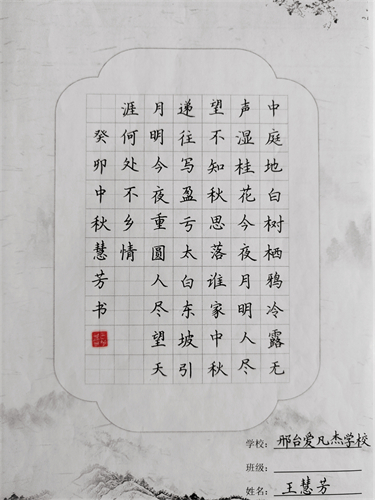 中庭地白树栖鸦冷露无
声湿桂花今夜月明人尽
望不知秋思落谁家中秋
递往写盈亏太白东坡引
月明今夜重圆人尽望天
涯何处不乡情
癸卯中秋慧芳书
学校：邢台爱凡杰学校
班级：
姓名：王慧芳